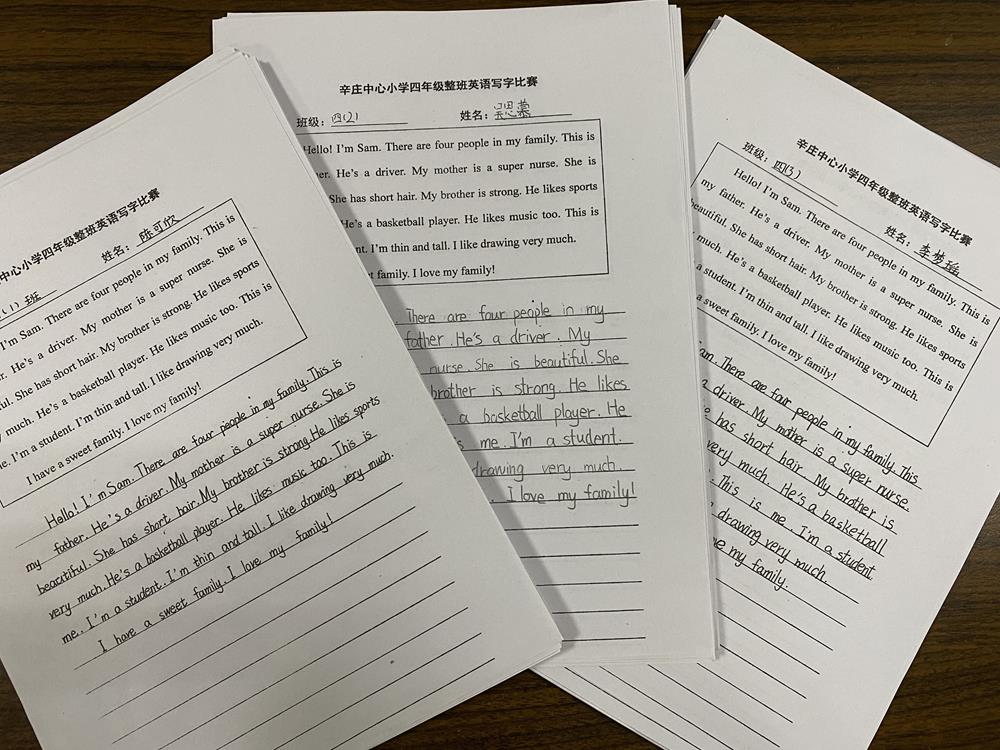 中心小学四年级整班英语写字比赛
(1)班 姓名：陈可欣
I'm Sam. There are four people in my family. This is
He's a driver. My mother is a super nurse. She is
She has short hair. My brother is strong. He likes sports
much. He's a basketball player. He likes music too. This is
I'm a student. I'm thin and tall. I like drawing very much.
I have a sweet family. I love my family!
Hello! I'm Sam. There are four people in my family. This is
my father. He's a driver. My mother is a super nurse. She is
beautiful. She has short hair. My brother is strong. He likes sports
very much. He's a basketball player. He likes music too. This is
me.. I'm a student. I'm thin and tall. I like drawing very much.
I have a sweet family. I love my family!
辛庄中心小学四年级整班英语写字比赛
班级：四(2) 姓名：
Hello! I'm Sam. There are four people in my family. This is
He's a driver. My mother is a super nurse. She is
She has short hair. My brother is strong. He likes sports
He's a basketball player. He likes music too. This is
I'm thin and tall. I like drawing very much.
family. I love my family!
There are four people in my
father. He's a driver. My
nurse. She is beautiful. She
brother is strong. He likes
a basketball player. He
me. I'm a student.
drawing very much.
I love my family!
辛庄中心小学四年级整班英语写字比赛
班级：四(3) 姓名：李梦瑶
Hello! I'm Sam. There are four people in my family. This is
my father. He's a driver. My mother is a super nurse. She is
beautiful. She has short hair. My brother is strong. He likes sports
much. He's a basketball player. He likes music too. This is
a student. I'm thin and tall. I like drawing very much.
a sweet family. I love my family!
There are four people in my family. This
a driver. My mother is a super nurse.
has short hair My brother is
very much. He's a basketball
This is me. I'm a student
drawing very much.
my family.